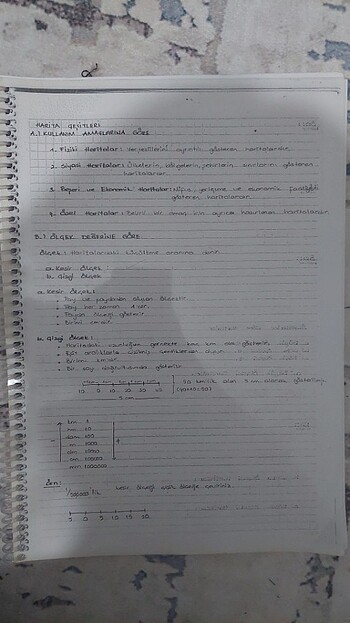 HARİTA ÇEŞİTLERİ
A.) KULLANIM AMAÇLARINA GÖRE
1. Fiziki Haritalar: Yer şekillerini ayrıntılı gösteren haritalardır.
2. Siyasi Haritalar: Ülkelerin, bölgelerin, şehirlerin sınırlarını gösteren
haritalardır.
3. Beşeri ve Ekonomik Haritalar: Nüfus, yerleşme ve ekonomik faaliyetleri
gösteren haritalardır.
4. Özel Haritalar: Belirli bir amaç için ayrıntılı hazırlanan haritalardır.
B.) ÖLÇEK DEĞERİNE GÖRE
Ölçek: Haritalardaki küçültme oranına denir.
a. Kesir Ölçek
b. Çizgi Ölçek
a. Kesir Ölçek:
• Pay ve paydadan oluşan ölçektir.
• Pay her zaman 1 dir.
• Paydası ölçeği gösterir.
• Birimi cm'dir.
b. Çizgi Ölçek:
• Haritadaki uzunluğun gerçekte kaç km olduğu gösterir.
• Eşit aralıklarla
• Birimi km'dir.
• Bir sayı doğrultusunda gösterilir.
10 0 10 20 30 40
5 cm
50 km'lik alan 5 cm olarak gösterilmiş.
km 1
hm 10
dam 100
m 1000
dm 10000
cm 100000
mm 1000000
Örn:
1/500000 'lik kesir ölçeği çizgi ölçeğe çeviriniz.
5 0 5 10 15 20